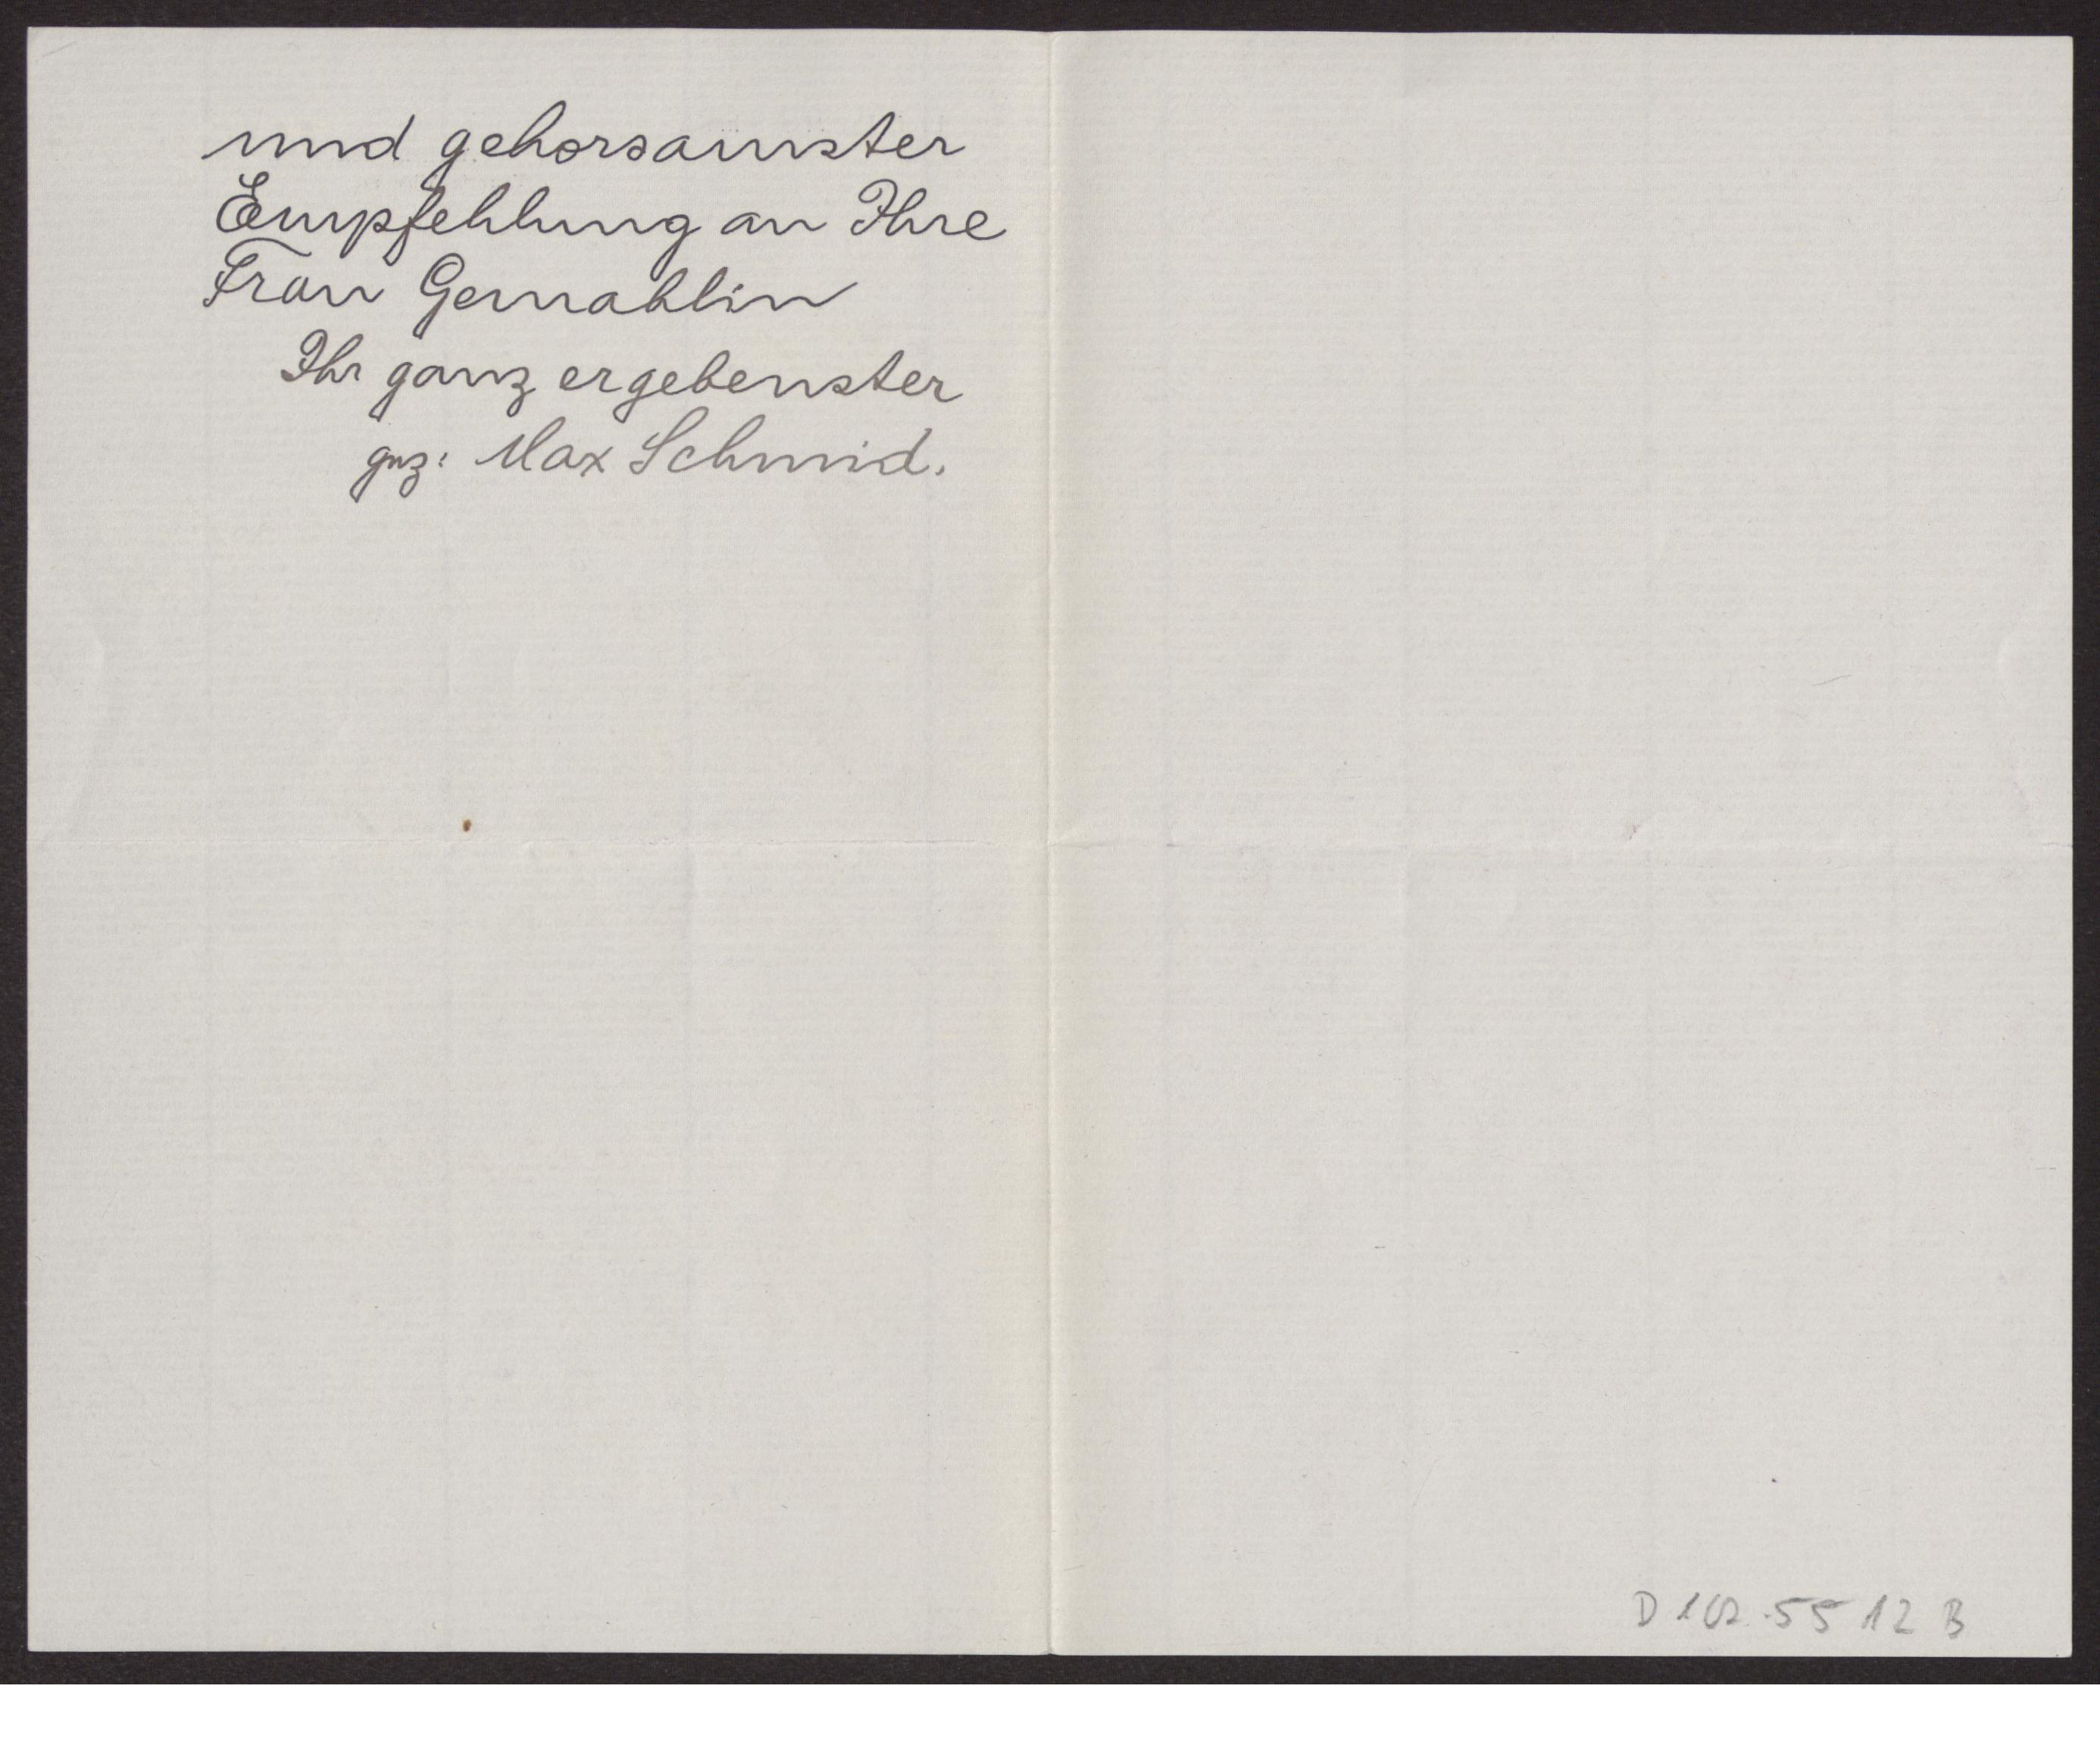 und gehorsamster
Empfehlung an Ihre
Frau Gemahlin
Ihr ganz ergebenster
gez: Max Schmid.
D 102.55 12 B